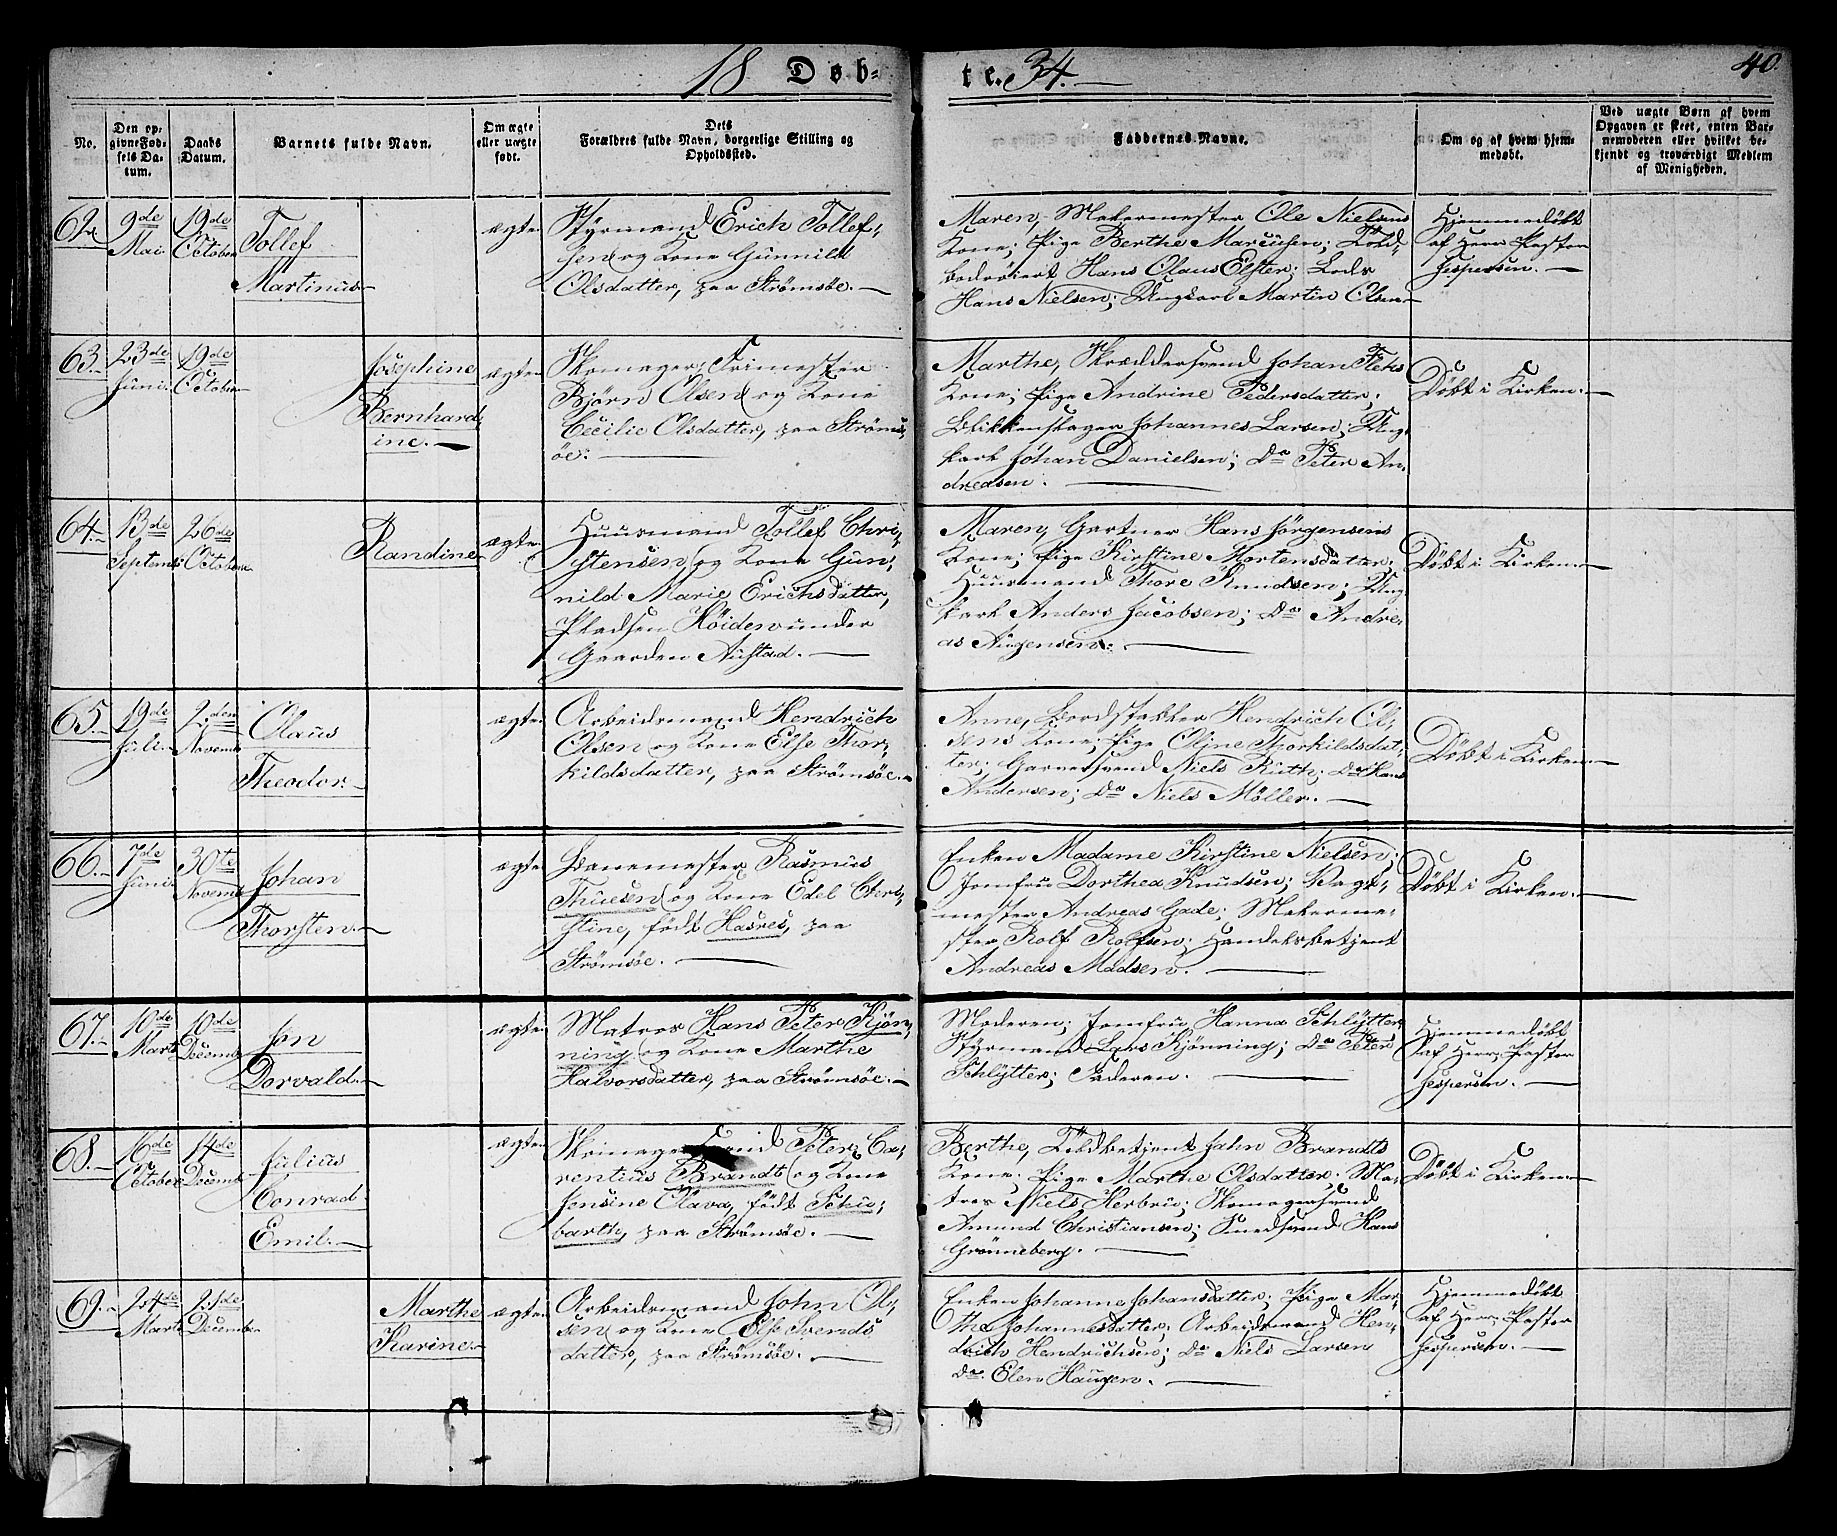 18 Døb-
te. 34.
40.
No.
Den op-
givne Fød-
sels Da-
tum.
Daabs
Datum.
Barnets fulde Navn.
Om ægte
eller uægte
født.
Dets
Forældres fulde Navn, borgerlige Stilling og
Opholdssted.
Faddernes Navne.
Om og af hvem hjem-
medøbt.
Ved uægte Børn af hvem
Opgaven er skeet, enten Bar-
nemoderen eller hvilket be-
kjendt og troværdigt Medlem
af Menigheden.
62.
9de
Mai.
19de
October
Tollef
Martinus.
ægte
Styrmand Erich Tollef-
sen og Kone Gunnild
Olsdatter, paa Strömsöe.
Maren, Møkermester Ole Nielsens
Kone; Pige Berthe Marcusen; Told-
bedröiert Hans Claus Elster; Lods
Hans Nielsen; Ungkarl Martin Olsen
Hjemmedöbt
af Herr Pastor
Jespersen.
63.
23de
Juni.
19de
October
Josephine
Bernhard-
ine.
ægte
Skomager, Frimester
Björn Olsen og Kone
Cecilie Olsdatter, paa Ströms-
öe.
Marthe, Skræddersvend Johan
Kone; Pige Andrine Pedersdatter;
Blikkenslager Johannes Larsen; Ung-
karl Johan Danielsen; Do Peter An-
dreasen.
Döbt i Kirken.
64.
13de
Septemb
26de
October
Randine
ægte
Huusmand Tollef Chri-
stensen og Kone Gun-
nild Marie Erichsdatter,
Pladsen Höiden under
Gaarden Austad.
Maren, Gartner Hans Jörgensens
Kone; Pige Kirstine Mortensdatter;
Huusmand Thore Knudsen; Ung-
karl Anders Jacobsen; Do Andre-
as Augensen.
Döbt i Kirken.
65.
19de
Juli.
2den
Novemb
Olaus
Theodor.
ægte
Arbeidsmand Hendrich
Olsen og Kone Else Thor-
kildsdatter, paa Strömsöe.
Anne, Bordstabler Hendrich Ol-
sens Kone; Pige Oline Thorkildsdat-
ter; Garversvend Niels Ruth; Do Hans
Andersen; Do Niels Möller.
Döbt i Kirken.
66.
7de
Juni.
30te
Novemb
Johan
Thorsten.
ægte
Havnemester Rasmus
Thuesen og Kone Edel Chri-
stine, født Hasres, paa
Strömsöe.
Enken Madame Kirstine Nielsen;
Jomfru Dorthea Knudsen; Vagt-
mester Andreas Gade; Møkerme-
ster Rolf Rolfsen; Handelsbetjent
Andreas Madsen.
Döbt i Kirken.
67.
10de
Marts
10de
Decemb
Jon
Dorvald.
ægte
Matros Hans Peter Kjön-
ning og Kone Marthe
Halvorsdatter, paa Strömsöe.
Moderen; Jomfru Hanna Schlytter
Styrmand Lars Kjönning; Do Peter
Schlytter; Faderen.
Hjemmedöbt
af Herr Pastor
Jespersen.
68.
16de
October
14de
Decemb
Julius
Conrad
Emil.
ægte
Skomagersvend Peter Cø-
rentius Brandt og Kone
Jensine Olava, født Schu-
barth, paa Strömsöe.
Berthe, Toldbetjent Jahn Brandts
Kone; Pige Marthe Olsdatter; Ma-
tros Niels Herbru; Skomagersvend
Amund Christiansen; Smedsvend Hans
Grönneberg.
Döbt i Kirken
69.
24de
Marts
21de
Decembr
Marthe
Karine.
ægte
Arbeidsmand John Ol-
sen og Kone Else Svends
datter, paa Strömsöe.
Enken Johanne Johansdatter; Pige Mar-
the Johannesdatter; Arbeidsmand Hen-
drich Hendrichsen; Do Niels Larsen
Do. Elen Haugen.
Hjemmedöbt
af Herr Pastor
Jespersen.